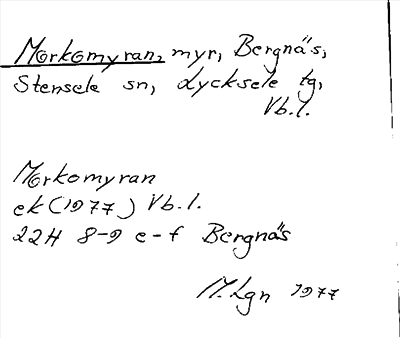 Morkomyran, myr, Bergnäs,
Stensele sn, Lycksele tg,
Vb.l.
Morkomyran
ek (1977) Vb.l.
22H 8-9 e-f Bergnäs
M.Lgn 1977